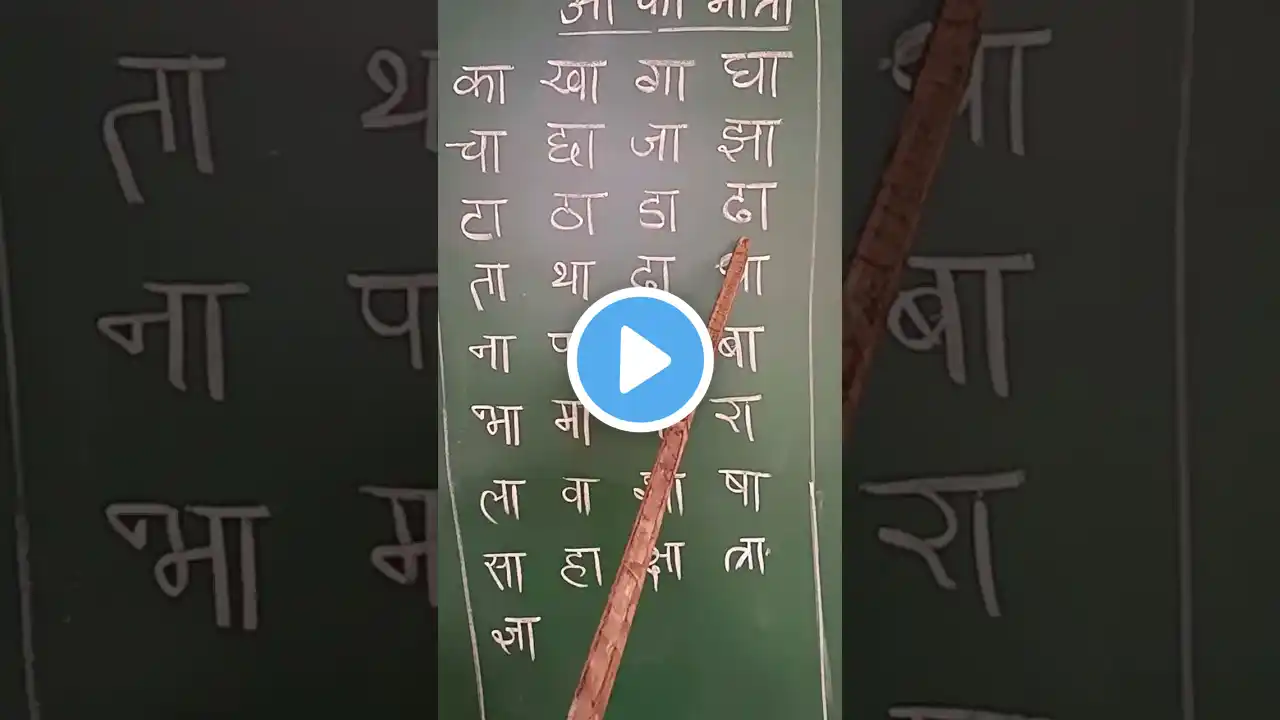 आ की मात्रा
का खा गा घा
चा छा जा झा
टा ठा डा ढा
ता था दा धा
ना बा
भा मा रा
ला वा षा
सा हा क्षा त्रा
ज्ञा